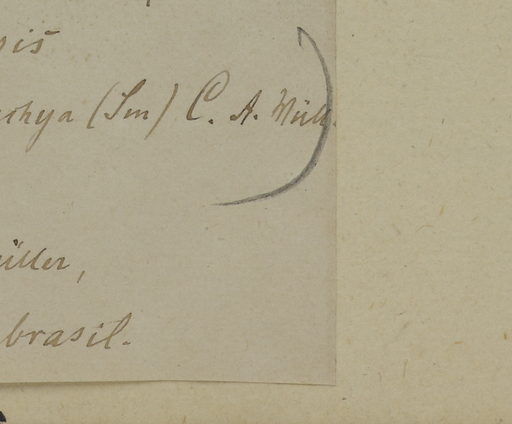 sis
rhya (Sm) C. A. Müll.
üller,
brasil.